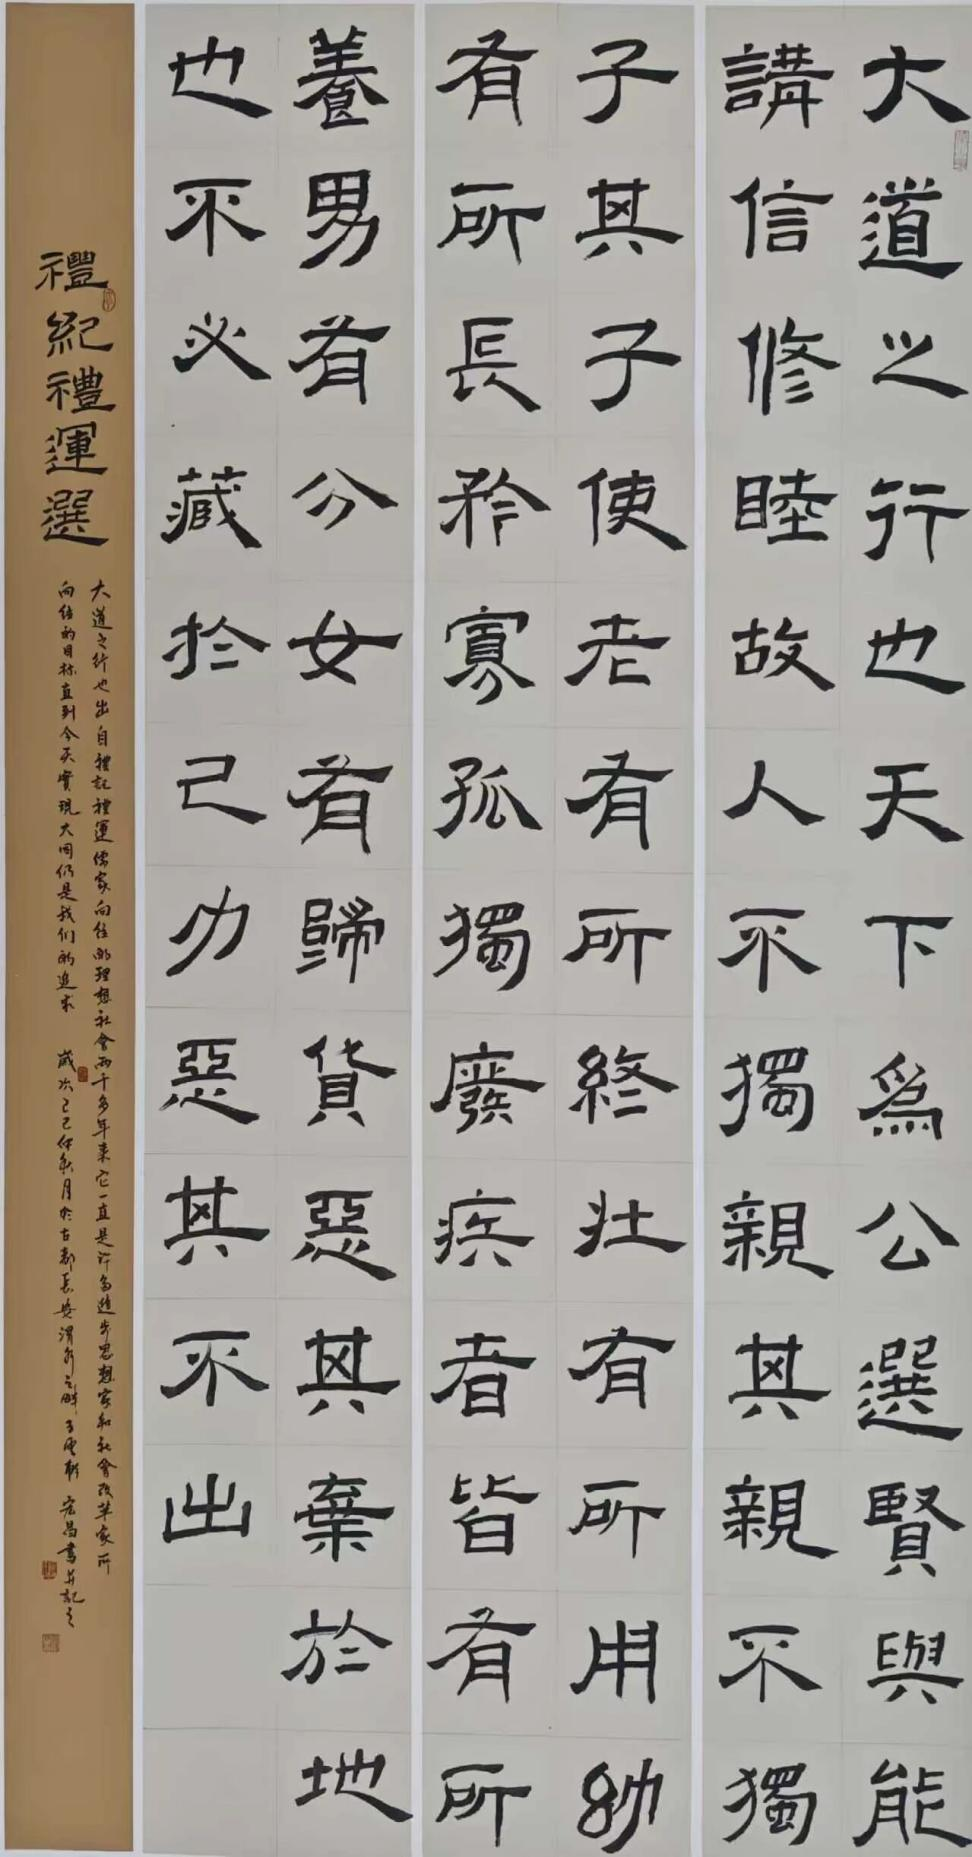 大道之行也天下爲公選賢與能
講信修睦故人不獨親其親不獨
子其子使老有所終壯有所用幼
有所長矜寡孤獨廢疾者皆有所
養男有分女有歸貨惡其棄於地
也不必藏於己力惡其不出
禮紀禮運選
大道之行也出自禮記禮運儒家向往的理想社會两千多年来它一直是许多進步思想家和社會改革家所
向往的目标直到今天實現大同仍是我们的追求 歲次乙巳仲秋月於古都長安渭水之畔 宏昌書并記之